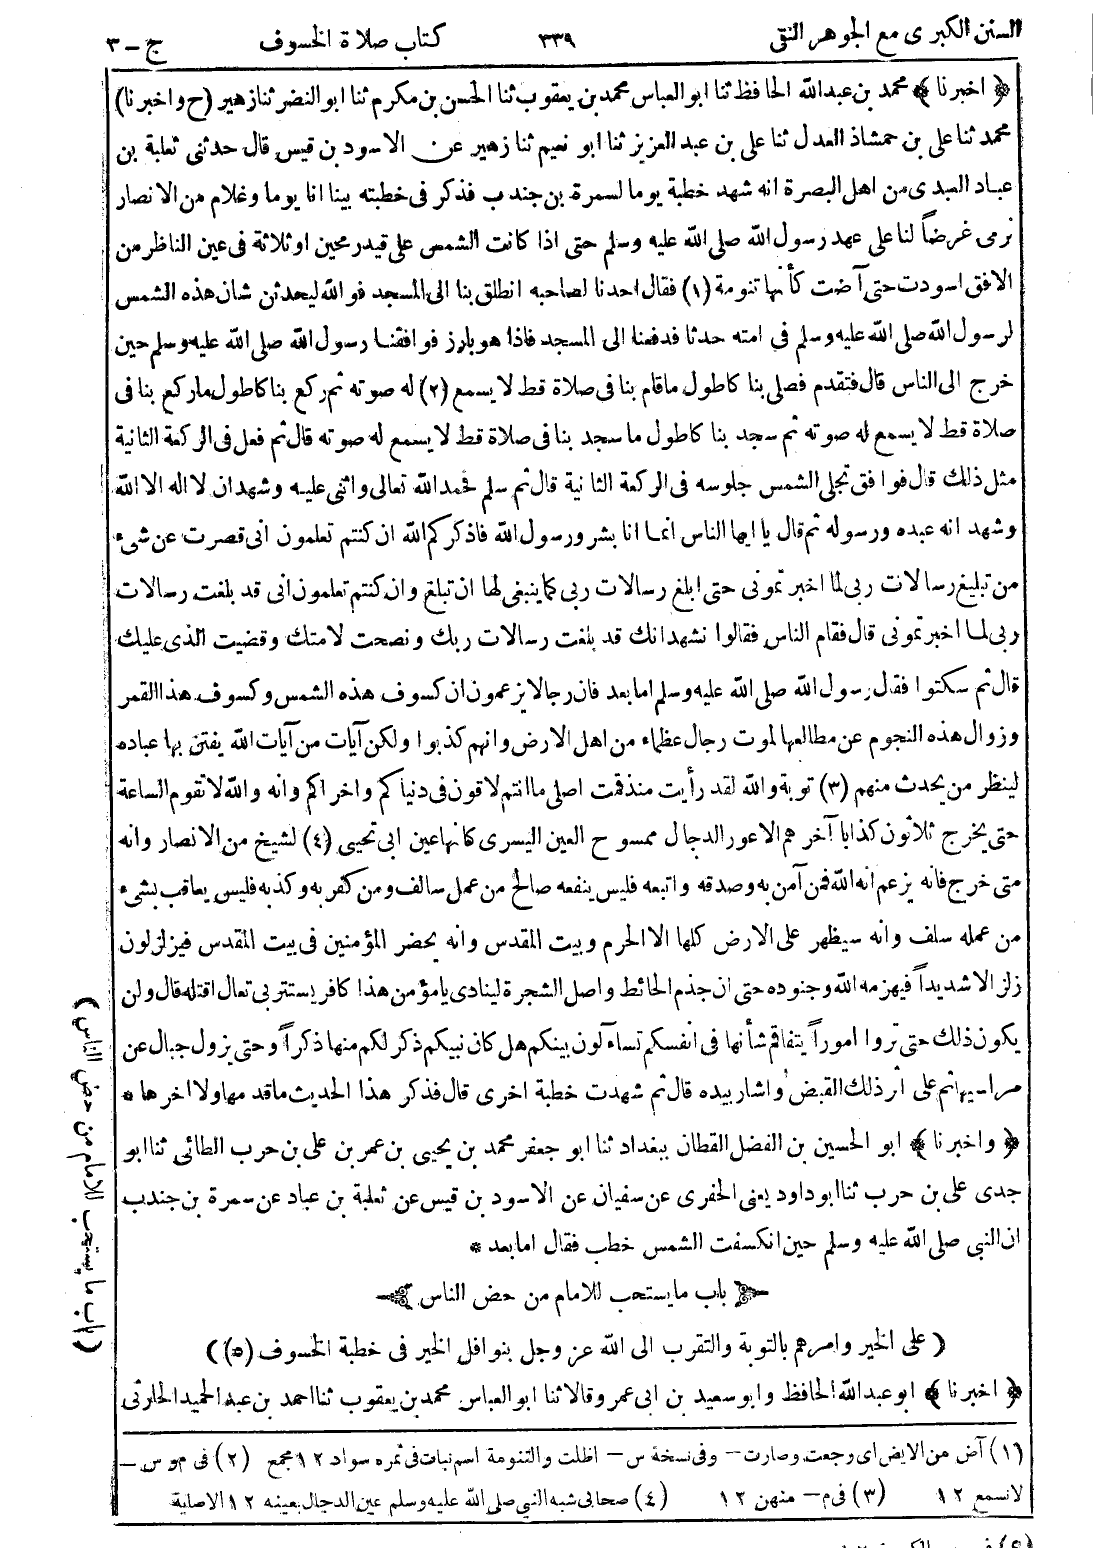 السنن الكبرى مع الجوهر النقى ٣٣٩ كتاب صلاة الخسوف ج-٣
﴿ اخبرنا ﴾ محمد بن عبدالله الحافظ ثنا ابو العباس محمد بن يعقوب ثنا الحسن بن مكرم ثنا ابو النضر ثنا زهير (ح و اخبرنا)
محمد ثنا على بن حمشاذ العدل ثنا على بن عبد العزيز ثنا ابو نعيم ثنا زهير عن الاسود بن قيس قال حدثنى ثعلبة بن
عباد العبدى من اهل البصرة انه شهد خطبة يوما لسمرة بن جندب فذكر فى خطبته بينا انا يوما وغلام من الانصار
نرمى غرضاً لنا على عهد رسول الله صلى الله عليه وسلم حتى اذا كانت الشمس على قيد رمحين او ثلاثة فى عين الناظر من
الافق اسودت حتى آضت كأنها تنومة (١) فقال احدنا لصاحبه انطلق بنا الى المسجد فو الله ليحدثن شان هذه الشمس
لرسول الله صلى الله عليه وسلم فى امته حدثا فدفعنا الى المسجد فاذا هو بارز فوافقنا رسول الله صلى الله عليه وسلم حين
خرج الى الناس قال فتقدم فصلى بنا كاطول ما قام بنا فى صلاة قط لا يسمع (٢) له صوته ثم ركع بنا كاطول ما ركع بنا فى
صلاة قط لا يسمع له صوته ثم سجد بنا كاطول ما سجد بنا فى صلاة قط لا يسمع له صوته قال ثم فعل فى الركعة الثانية
مثل ذلك قال فوافق تجلى الشمس جلوسه فى الركعة الثانية قال ثم سلم فحمد الله تعالى واثنى عليه وشهد ان لا اله الا الله
وشهد انه عبده ورسوله ثم قال يا ايها الناس انما انا بشر ورسول الله فاذكركم الله ان كنتم تعلمون انى قصرت عن شىء
من تبليغ رسالات ربى لما اخبرتمونى حتى ابلغ رسالات ربى كما ينبغى لها ان تبلغ وان كنتم تعلمون انى قد بلغت رسالات
ربى لما اخبرتمونى قال فقام الناس فقالوا نشهد انك قد بلغت رسالات ربك ونصحت لامتك وقضيت الذى عليك
قال ثم سكتوا فقال رسول الله صلى الله عليه وسلم اما بعد فان رجالا يزعمون ان كسوف هذه الشمس وكسوف هذا القمر
وزوال هذه النجوم عن مطالعها لموت رجال عظماء من اهل الارض وانهم كذبوا ولكن آيات من آيات الله يفتن بها عباده
لينظر من يحدث منهم (٣) توبة والله لقد رأيت منذ قمت اصلى ما انتم لاقون فى دنياكم واخراكم وانه والله لا تقوم الساعة
حتى يخرج ثلاثون كذابا آخرهم الاعور الدجال ممسوح العين اليسرى كانها عين ابى تحيى (٤) لشيخ من الانصار وانه
متى خرج فانه يزعم انه الله فمن آمن به وصدقه واتبعه فليس ينفعه صالح من عمل سالف ومن كفر به وكذبه فليس يعاقب بشىء
من عمله سلف وانه سيظهر على الارض كلها الا الحرم وبيت المقدس وانه يحضر المؤمنين فى بيت المقدس فيزلزلون
زلزالا شديداً فيهزمه الله وجنوده حتى ان جذم الحائط واصل الشجرة لينادى يا مؤمن هذا كافر يستتر بى تعال اقتله قال ولن
يكون ذلك حتى تروا اموراً يتفاقم شأنها فى انفسكم تساءلون بينكم هل كان نبيكم ذكر لكم منها ذكراً وحتى يزول جبال عن
مراسيها ثم على اثر ذلك القبض واشار بيده قال ثم شهدت خطبة اخرى قال فذكر هذا الحديث ما قدمها ولا اخرها *
﴿ واخبرنا ﴾ ابو الحسين بن الفضل القطان ببغداد ثنا ابو جعفر محمد بن يحيى بن عمر بن على بن حرب الطائى ثنا ابو
جدى على بن حرب ثنا ابو داود يعنى الحفرى عن سفيان عن الاسود بن قيس عن ثعلبة بن عباد عن سمرة بن جندب
ان النبى صلى الله عليه وسلم حين انكسفت الشمس خطب فقال اما بعد *
باب ما يستحب للامام من حض الناس
( على الخير وامرهم بالتوبة والتقرب الى الله عز وجل بنوافل الخير فى خطبة الخسوف (٥) )
﴿ اخبرنا ﴾ ابو عبد الله الحافظ وابو سعيد بن ابى عمرو قالا ثنا ابو العباس محمد بن يعقوب ثنا احمد بن عبد الحميد الحارثى
(١) آض من الايض اى رجعت وصارت - وفى نسخة س - اظلت والتنومة اسم نبات فى ثمره سواد ١٢ مجمع (٢) فى م و س -
لا نسمع ١٢ (٣) فى م - منهن ١٢ (٤) صحابى شبه النبى صلى الله عليه وسلم عين الدجال بعينه ١٢ الاصابة
( باب ما يستحب للامام من حض الناس )